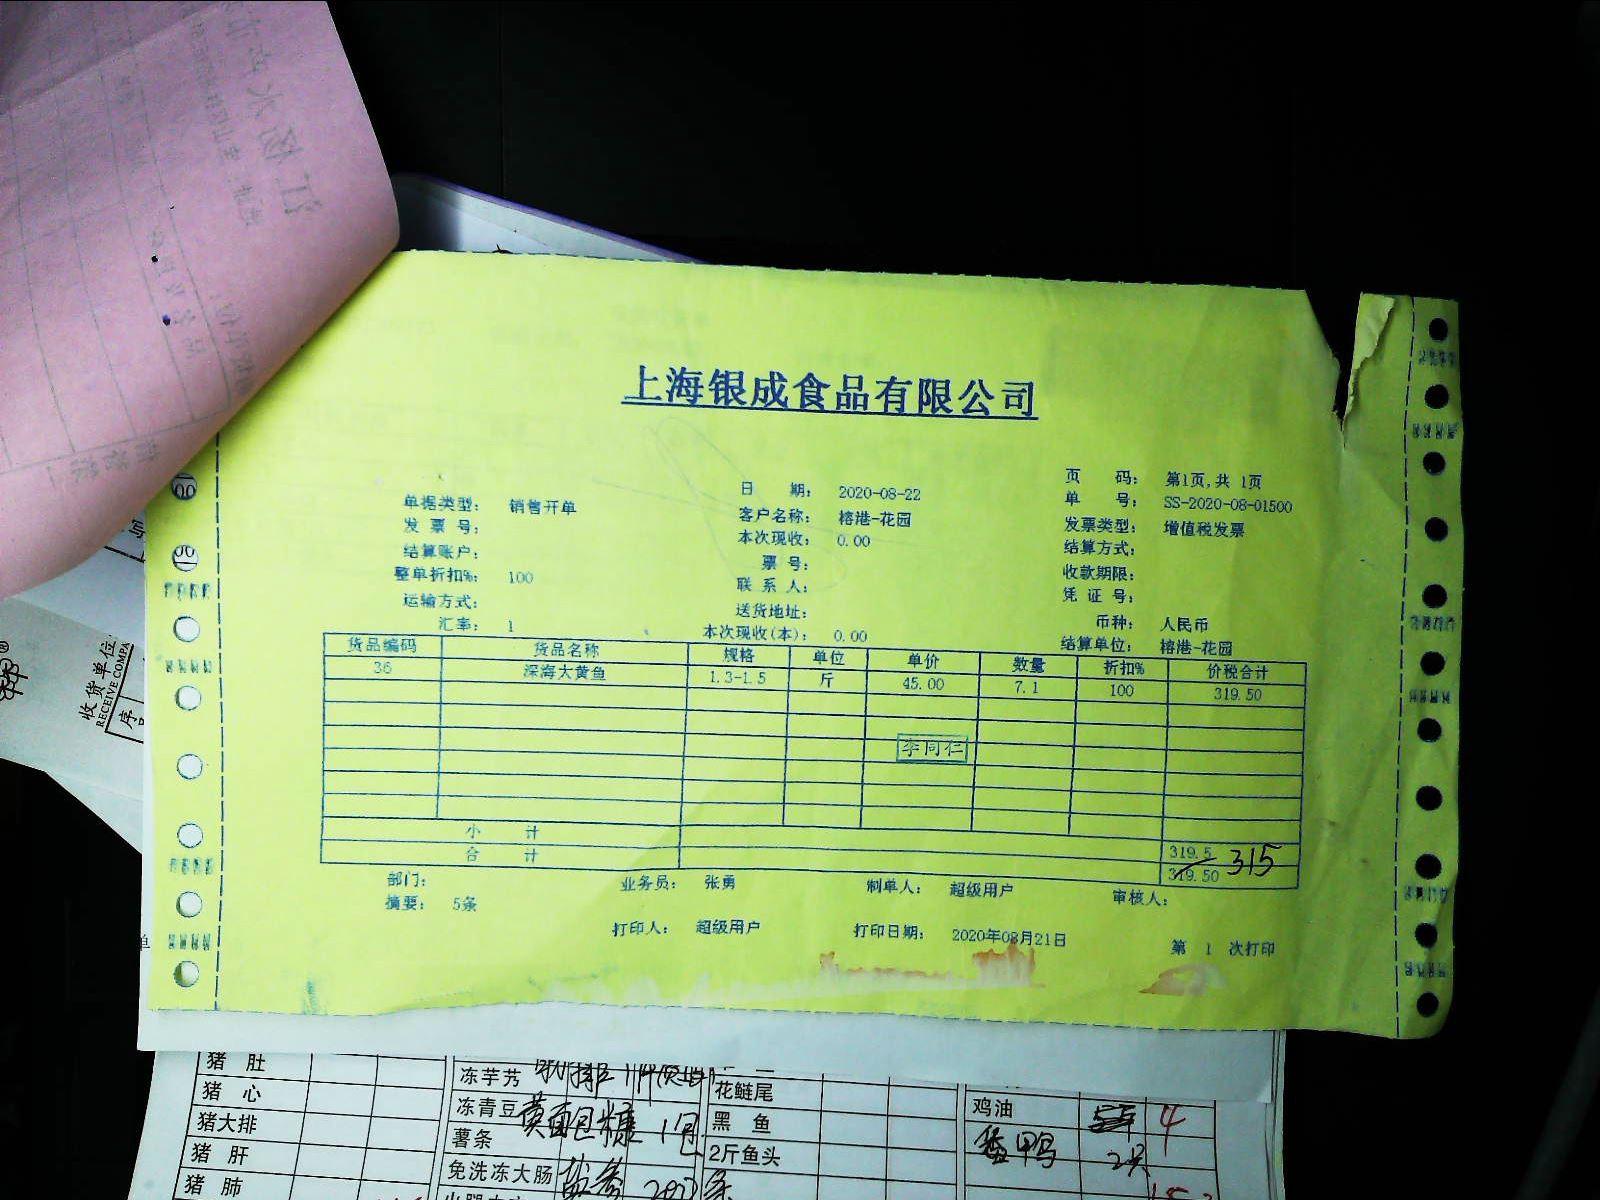 上海银成食品有限公司
单据类型： 销售开单
日 期： 2020-08-22
页 码： 第1页,共 1页
发 票 号：
客户名称： 榕港-花园
单 号： SS-2020-08-01500
结算账户：
本次现收： 0.00
发票类型： 增值税发票
整单折扣%： 100
票 号：
结算方式：
运输方式：
联 系 人：
收款期限：
汇率： 1
送货地址：
凭 证 号：
本次现收(本)： 0.00
币种： 人民币
结算单位： 榕港-花园
货品编码 货品名称 规格 单位 单价 数量 折扣% 价税合计
36 深海大黄鱼 1.3-1.5 斤 45.00 7.1 100 319.50
李同仁
小 计 319.5
合 计 319.50 315
部门： 业务员： 张勇 制单人： 超级用户 审核人：
摘要： 5条
打印人： 超级用户 打印日期： 2020年08月21日 第 1 次打印
收货单位
RECEIVE COMPA
序
单
猪 肚
猪 心
猪大排
猪 肝
猪 肺
冻芋艿
冻青豆 黄面包糠 1包
薯条
免洗冻大肠
花鲢尾
黑 鱼
2斤鱼头
鸡油 4
2只